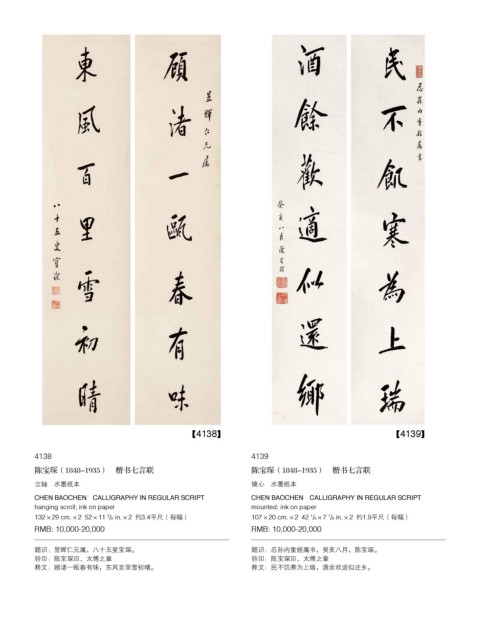 顧渚一甌春有味
昱輝仁兄屬
東風百里雪初晴
八十五叟寶琛
【4138】
民不飢寒為上瑞
酒餘歡適似還鄉
癸亥八月陳寶琛
【4139】
4138
陈宝琛（1848–1935） 楷书七言联
立轴 水墨纸本
CHEN BAOCHEN CALLIGRAPHY IN REGULAR SCRIPT
hanging scroll; ink on paper
132×29 cm.×2 52×11 3/8 in.×2 约3.4平尺（每幅）
RMB: 10,000-20,000
题识：昱辉仁兄属，八十五叟宝琛。
钤印：陈宝琛印、太傅之章
释文：顾渚一瓯春有味，东风百里雪初晴。
4139
陈宝琛（1848–1935） 楷书七言联
镜心 水墨纸本
CHEN BAOCHEN CALLIGRAPHY IN REGULAR SCRIPT
mounted; ink on paper
107×20 cm.×2 42 1/8×7 7/8 in.×2 约1.9平尺（每幅）
RMB: 10,000-20,000
题识：忍孙内重姪属书，癸亥八月，陈宝琛。
钤印：陈宝琛印、太傅之章
释文：民不饥寒为上瑞，酒余欢适似还乡。